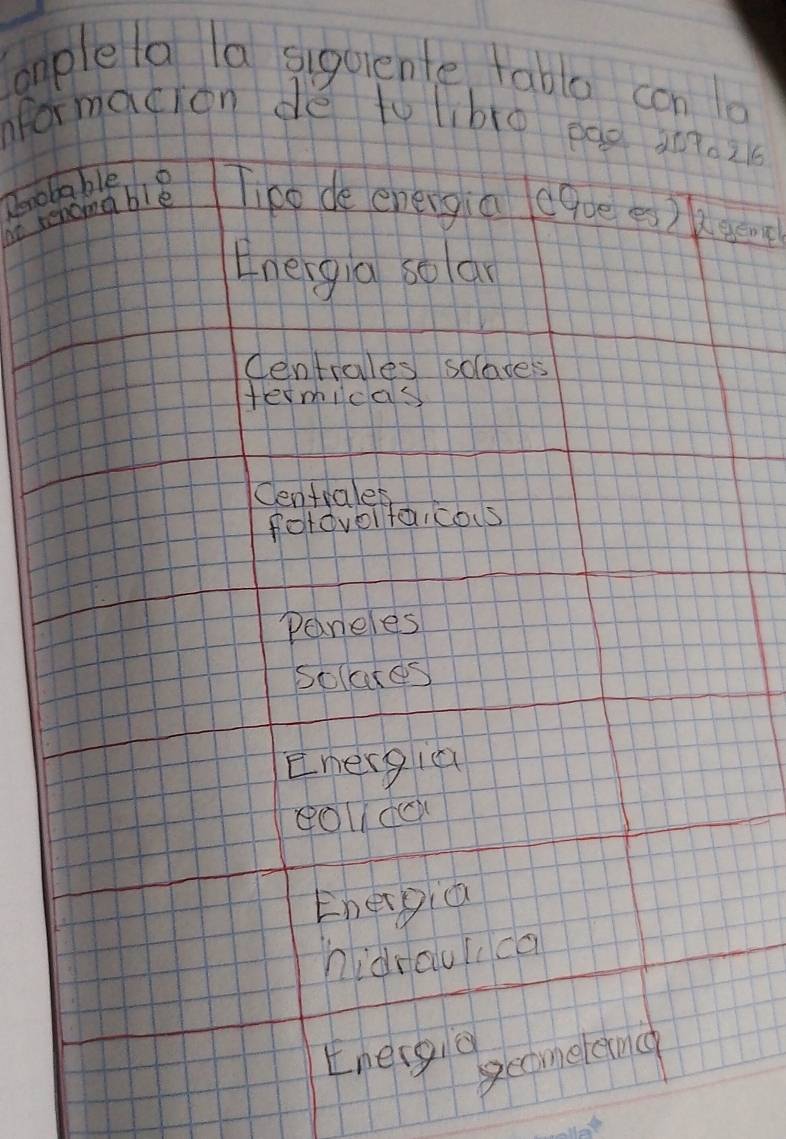 Conpleta la siguiente tabla con la
informacion de tu libro pag 207a216
Renobable o
no renomable
Tipo de energia
¿Que es?
2 egempl
Energia solar
Centrales solares
termicas
Centrales
fotovoltaicas
Paneles
solares
Energia
eolica
Energia
hidraulica
Energia
geometermica